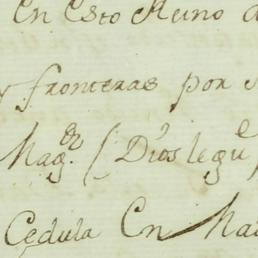 En Esto Reino d
y fronteras por s
Mag.^d (Dios le gu^e
Cedula En Ma